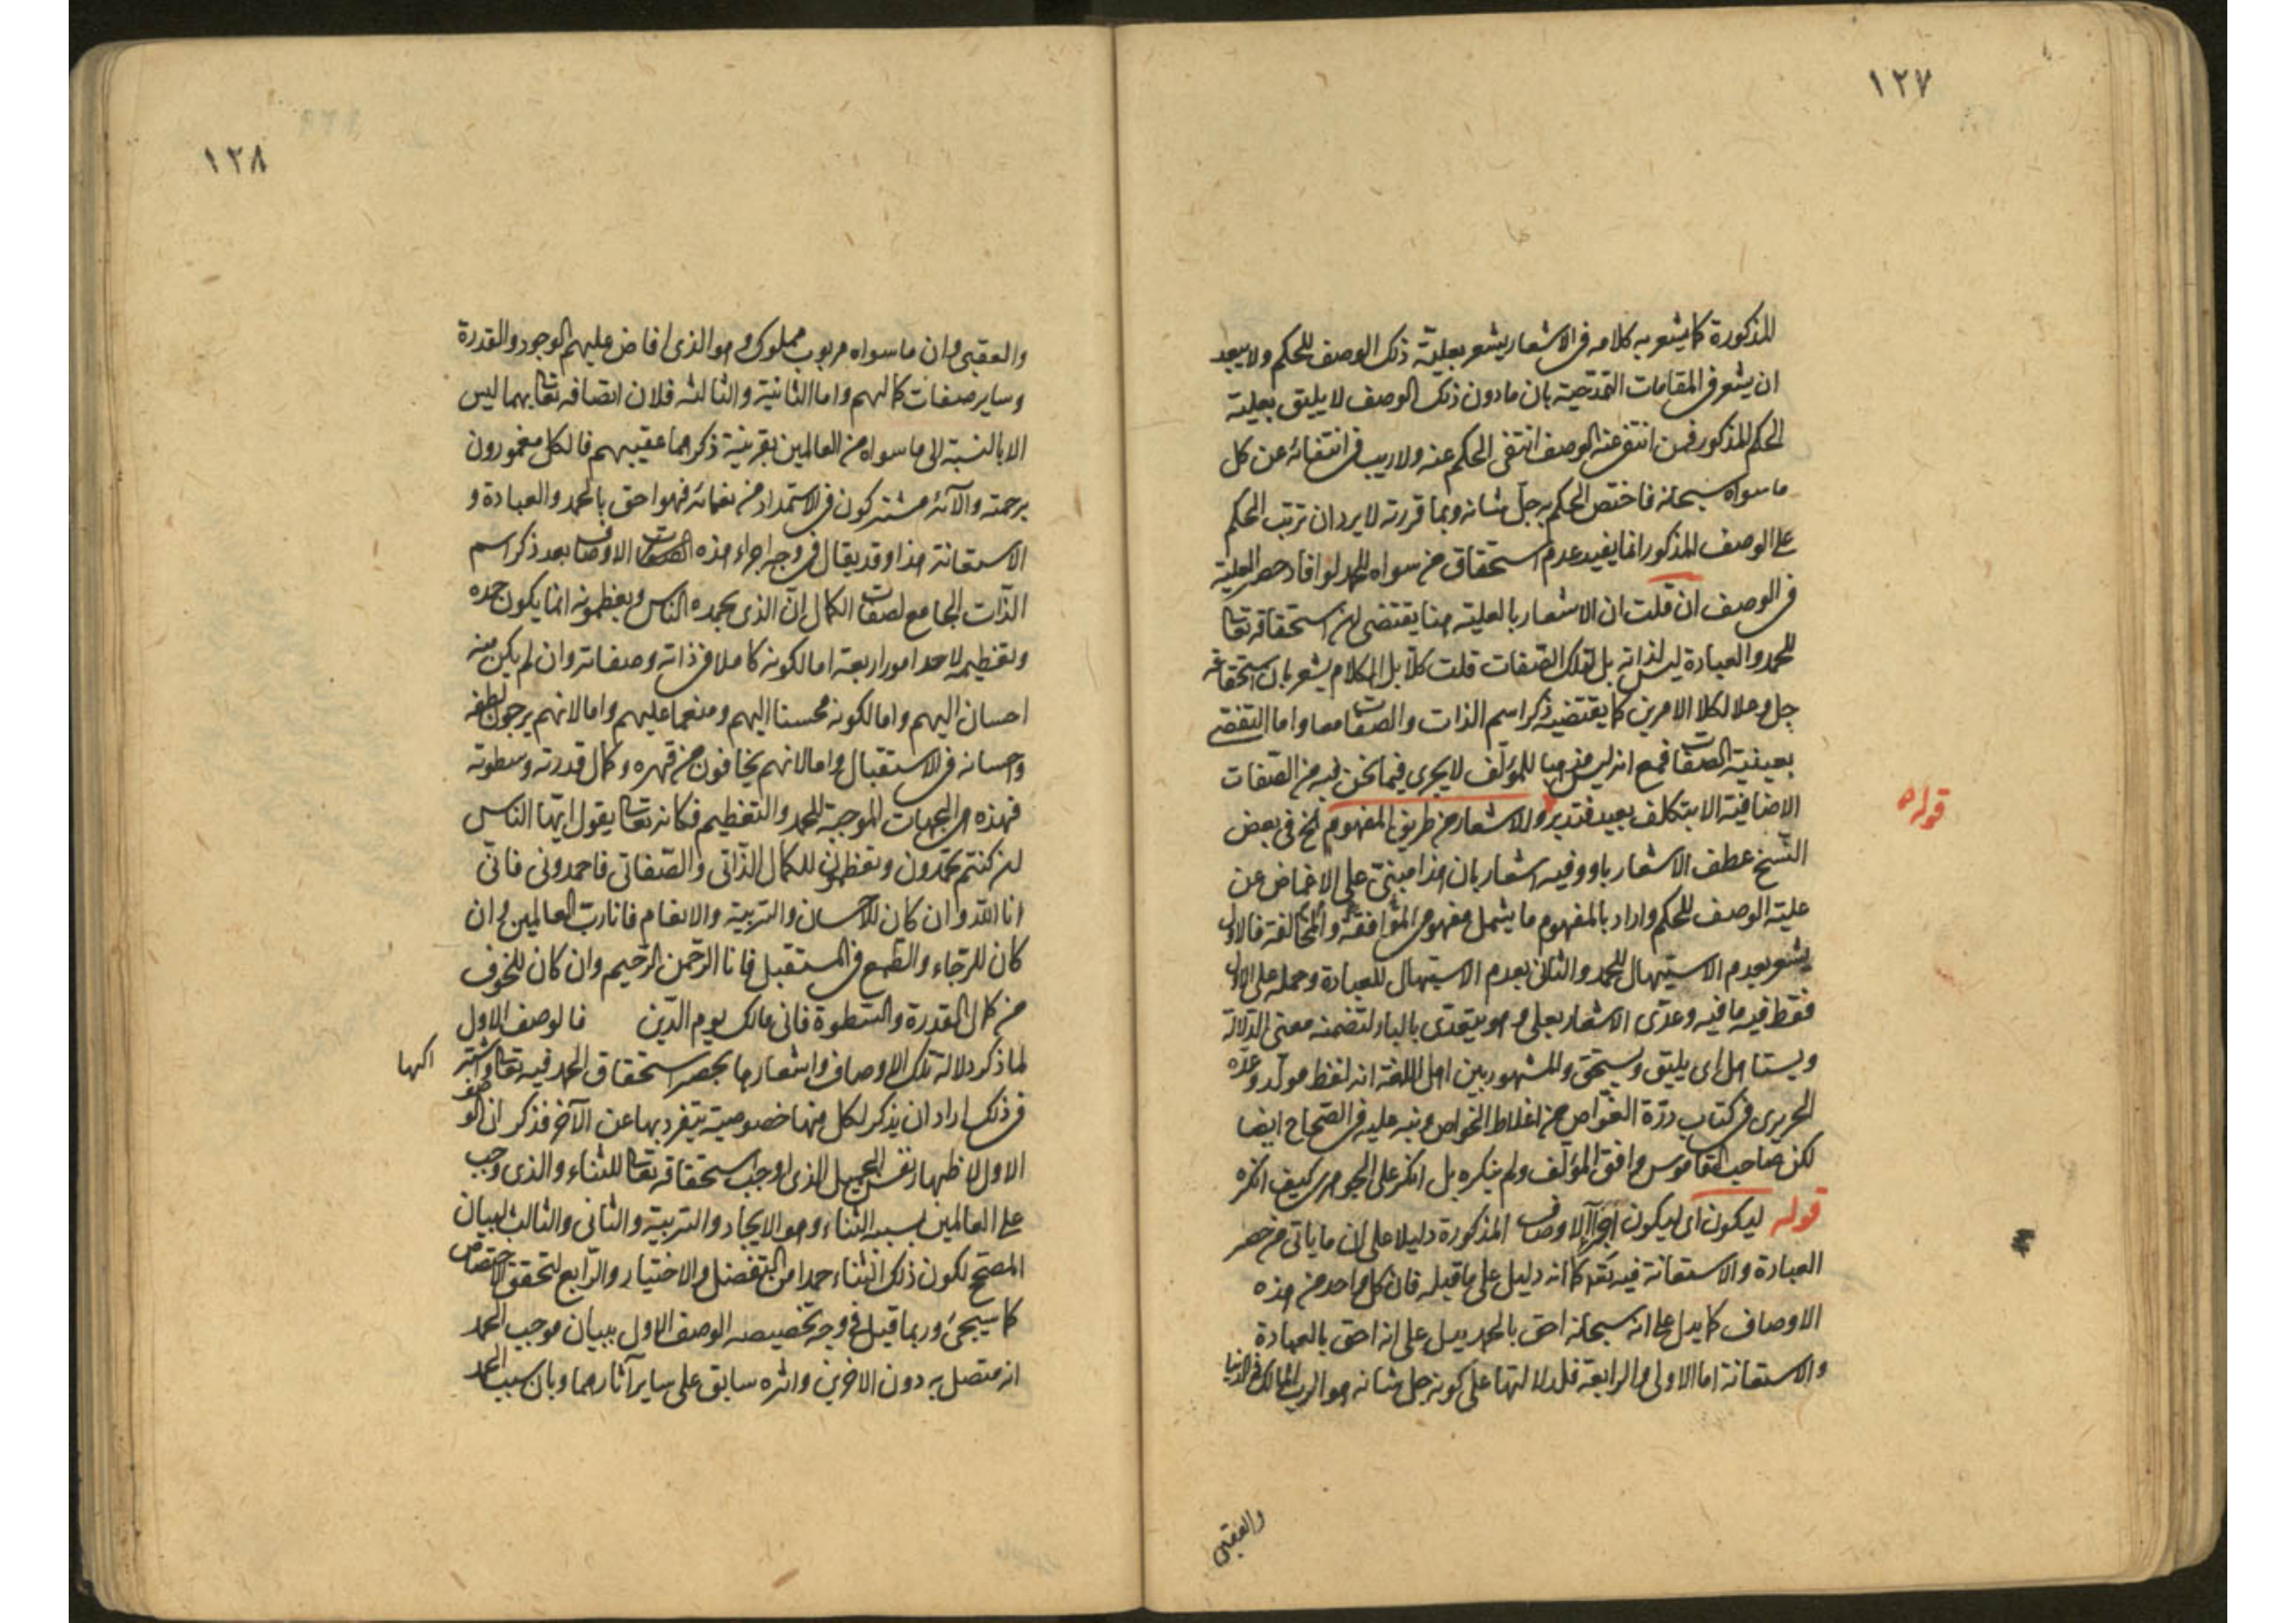 ١٢٧
للمذكورة كما يشعر به كلامه فى الاشعار يشعر بعلية ذلك الوصف للحكم ولا يبعد
ان يشعر فى المقامات التمدحية بان مادون ذلك الوصف لا يليق بعلية
الحكم المذكور فمن انتفى عنه الوصف انتفى الحكم عنه ولاريب فى انتفائه عن كل
ماسواه سبحانه فاختص الحكم به جل شانه وبما قررته لا يرد ان ترتب الحكم
على الوصف المذكور انما يفيد عدم استحقاق من سواه للحمد لو افاد حصر العلية
فى الوصف ان قلت ان الاشعار بالعلية هنا يقتضى ان استحقاقه تعا
للحمد والعبادة ليس لذاته بل لتلك الصفات قلت كلا بل الكلام يشعر بان استحقاقه
جل وعلا لكلا الامرين كما يقتضيه ذكر اسم الذات والصفات معا واما التفصى
بعينية الصفات فمع انه ليس مذهبا للمؤلف لا يجرى فيما نحن فيه من الصفات
الاضافية الا بتكلف بعيد فتدبر وللاشعار من طريق المفهوم الخ فى بعض
قوله
النسخ عطف الاشعار باو وفيه اشعار بان هذا مبنى على الاغماض عن
علية الوصف للحكم واراد بالمفهوم ما يشمل مفهومى الموافقة والمخالفة فالاول
يشعر بعدم الاستيهال للحمد والثانى بعدم الاستيهال للعبادة وحمله على الاول
فقط فيه ما فيه وعدى الاشعار بعلى وهو يتعدى بالباء لتضمنه معنى الدلالة
ويستاهل اى يليق ويستحق والمشهور بين اهل اللغة انه لفظ مولد وعده
الحريرى فى كتاب درة الغواص من اغلاط الخواص ونبه عليه فى الصحاح ايضا
لكن صاحب القاموس وافق المؤلف ولم ينكره بل انكر على الجوهرى كيف انكره
قوله ليكون اى ليكون اجراء الاوصاف المذكورة دليلا على ان ما ياتى من حصر
العبادة والاستعانة فيه تعا كما انه دليل على ما قبله فان كل واحد من هذه
الاوصاف كما يدل على انه سبحانه احق بالحمد يدل على انه احق بالعبادة
والاستعانة اما الاولى والرابعة فلدلالتها على كونه جل شانه هو الرب المالك فى الدنيا
والعقبى
١٢٨
والعقبى وان ماسواه مربوب مملوك وهو الذى افاض عليهم الوجود والقدرة
وساير صفات كمالهم واما الثانية والثالثه فلان اتصافه تعا بهما ليس
الا بالنسبة الى ماسواه من العالمين بقرينة ذكرهما عقيبهم فالكل مغمورون
برحمته والآئه مشتركون فى الاستمداد من نعمائه فهو احق بالحمد والعبادة و
الاستعانة هذا وقد يقال فى وجه اجراء هذه الصفات الاوصاف بعد ذكر اسم
الذات الجامع لصفات الكمال ان الذى يحمده الناس ويعظمونه انما يكون حمده
وتعظيمه لاحد امور اربعة اما لكونه كاملا فى ذاته وصفاته وان لم يكن منه
احسان اليهم واما لكونه محسنا اليهم ومنعما عليهم واما لانهم يرجون لطفه
واحسانه فى الاستقبال واما لانهم يخافون من قهره وكمال قدرته وسطوته
فهذه هى الجهات الموجبة للحمد والتعظيم فكانه تعا يقول ايها الناس
ان كنتم تحمدون وتعظمون للكمال الذاتى والصفاتى فاحمدونى فانى
انا الله وان كان للاحسان والتربية والانعام فانا رب العالمين وان
كان للرجاء والطمع فى المستقبل فانا الرحمن الرحيم وان كان للخوف
من كمال القدرة والسطوة فانى مالك يوم الدين فالوصف الاول
لما ذكر دلالة تلك الاوصاف واشعارها بحصر استحقاق الحمد فيه تعا واشتر
اكها
فى ذلك اراد ان يذكر لكل منها خصوصية يتفرد بها عن الآخر فذكر ان الوصف
الاول لاظهار نفس الجميل الذى اوجب استحقاقه تعا للثناء والذى وجب
على العالمين بسببه الثناء وهو الايجاد والتربية والثانى والثالث لبيان
المصحح لكون ذلك الثناء حمدا من التفضل والاختيار والرابع لتحقق الاختصاص
كما سيجئ وربما قيل فى وجه تخصيصه الوصف الاول ببيان موجب الحمد
انه متصل به دون الاخرين واثره سابق على ساير آثارهما وبان سبب الحمد